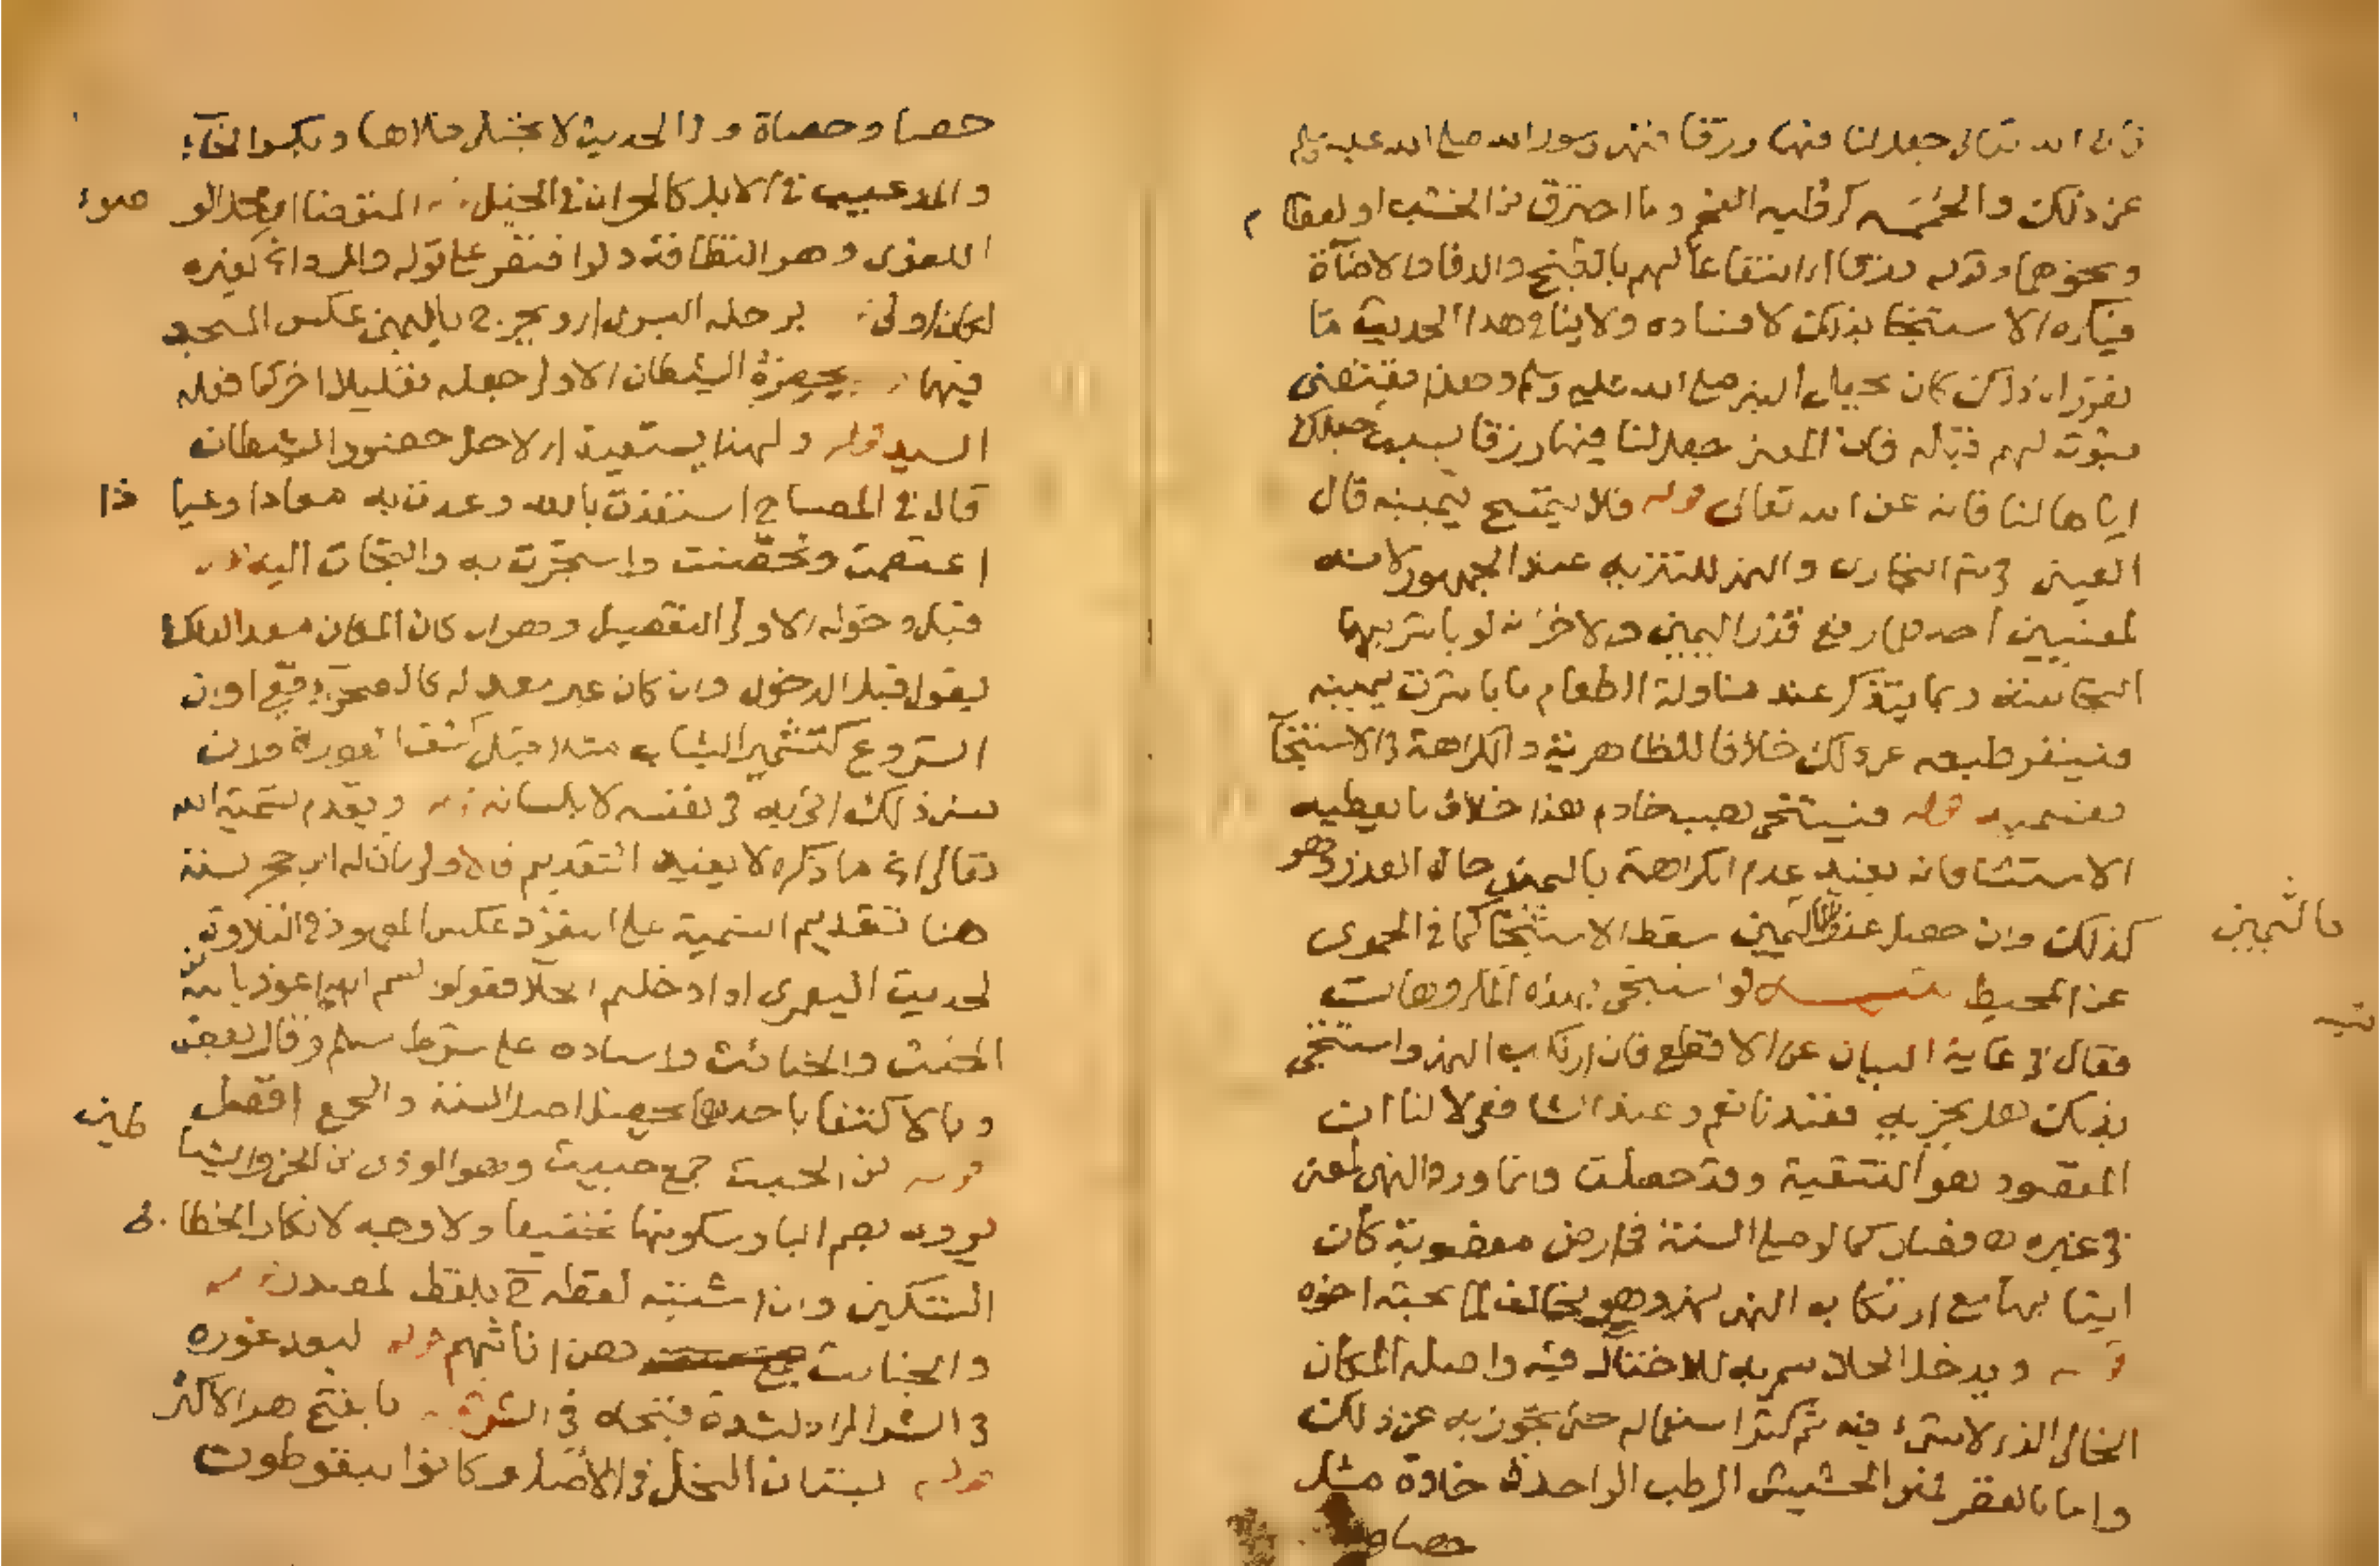 فان الله تعالى جعل لنا فيها رزقا فنهى رسول الله صلى الله عليه وسلم
عن ذلك والحممة كرطبه الفحم وما احترق من الخشب او العظام
ونحوهما وقوله رزقا اي انتفاعا لهم بالطبخ والدفا والاضآة
فيكره الاستنجا بذلك لافساده ولا ينافي هذا الحديث ما
تقرر ان ذلك كان بحيال النبي صلى الله عليه وسلم
ثبوته لهم قباله فان المعنى جعل لنا فيها رزقا بسبب جعلك
اياها لنا فانه عن الله تعالى قوله فلا يتمسح بيمينه قال
العيني في البخارى والنهى للتنزيه عند الجمهور لانه
لمعنيين احدهما رفع قدر اليمين والاخر انه لو باشر بها
النجاسة ربما يتذكر عند مناولة الطعام ما باشرت يمينه
فينفر طبعه عن ذلك خلافا للظاهرية والكراهة في الاستنجآ
بيمينه قوله فيستنجى بصب خادم هذا خلاف ما يعطيه
الاستثنا فانه يفيد عدم الكراهة باليمين حالة العذر وهو
كذلك وان حصل عذر باليمين سقط الاستنجا كما في الحموى
عن المحيط تنبيه لو استنجى بهذه المكروهات
فقال في غاية البيان عن الاقطع فان ارتكب النهى واستنجى
بذلك هل يجزيه فعندنا نعم وعند الشافعى لا لنا ان
المقصود هو التنقية وقد حصلت وانما ورد النهى لمعنى
في غيره فصار كما لو صلى السنة في ارض مغصوبة كان
اتيا بها مع ارتكابه النهى وهو يخالف لما بحثه اخوه
قوله ويدخل الخلا سمى به للاختلا فيه واصله المكان
الخالى الذى لا شىء فيه ثم كثر استعماله حتى تجوز به عن ذلك
واما بالقصر فهو الحشيش الرطب الواحدة خلاة مثل
حصا
باليمين
تنبيه
حصا وحصاة وفي الحديث لا يختلى خلاها وبكسر الخآء
والمد عيب في الابل كالحران في الخيل المتوضا اي محل الو
ضوء
اللغوى وهو النظافة ولو اقتصر على قوله والمراد كغيره
لكان اولى برجله اليسرى ويخرج باليمين عكس المسجد
فيهما يحضره الشيطان الاولى جعله تعليلا اخر كما فعله
السيد قوله ولهذا يستعيذ اي لاجل حضور الشيطان
قال في المصباح استعذت بالله وعذت به معاذا وعيا
ذا
اعتصمت وتحصنت واستجرت به والتجات اليه قوله
قبل دخوله الاولى التفصيل وهو ان كان المكان معدا لذلك
يقول قبل الدخول وان كان غير معد له كالصحرآء ففي اوان
الشروع كتشمير الثياب مثلا قبل كشف العورة وان
نسى ذلك اتى به في نفسه لا بلسانه قوله ويقدم تسمية الله
تعالى ما ذكره لا يفيد التقديم فالاولى ما قاله ابن حجر سنة
هنا تقديم التسمية على التعوذ عكس المعهود في التلاوة
لحديث اليعمرى اذا دخلتم الخلا فقولو بسم الله اعوذ بالله
من الخبث والخبائث واسناده على شرط مسلم وقال بعض
وبالاكتفا باحدهما يحصل اصل السنة والجمع افضل
قوله من الخبث جمع خبيث وهو الموذى من الجن والشيا
طين
يروى بضم البا وسكونها تخفيفا ولا وجه لانكار الخطابى
التسكين وان اشتبه لفظه ح بلفظ المصدر قوله
والخبائث وهن اناثهم قوله لبعد غوره
في الشر المراد لشدة قبحه في الشر ما بفتح هو الاكثر
قوله بستان النخل في الاصل وكانوا يتغوطون